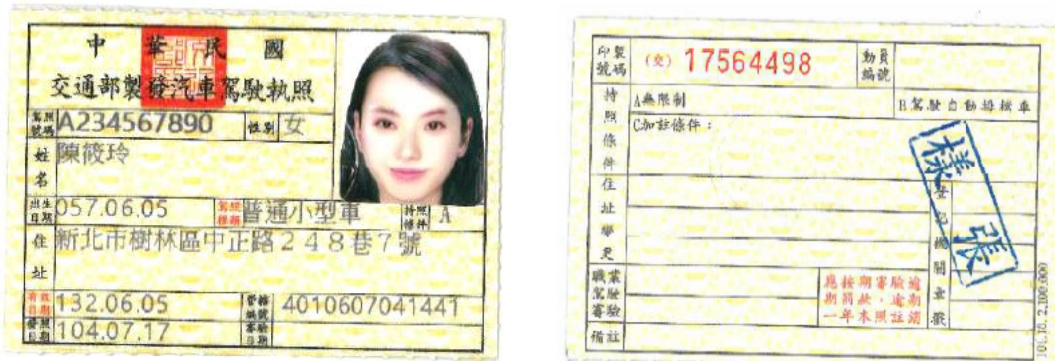 中華民國
交通部製發汽車駕駛執照
駕照號碼 A234567890 性別 女
姓名 陳筱玲
出生日期 057.06.05 駕照種類 普通小型車 持照條件 A
住址 新北市樹林區中正路248巷7號
有效日期 132.06.05 管轄編號 4010607041441
發照日期 104.07.17 審驗日期
印製號碼 (交) 17564498 動員編號
持照條件 A無限制 B駕駛自動排檔車
C加註條件：
樣張
住址變更 登記機關章戳
職業駕駛審驗 應按期審驗逾
期罰款，逾期
一年本照註銷
備註
01.10. 2,100,000